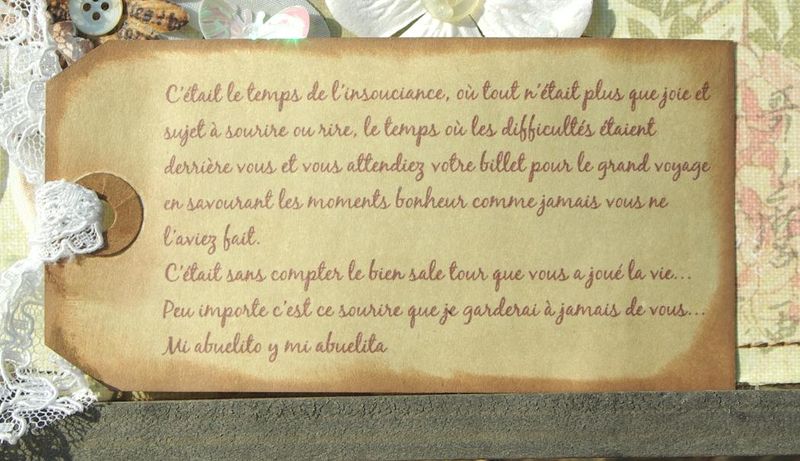 C'était le temps de l'insouciance, où tout n'était plus que joie et
sujet à sourire ou rire, le temps où les difficultés étaient
derrière vous et vous attendiez votre billet pour le grand voyage
en savourant les moments bonheur comme jamais vous ne
l'aviez fait.
C'était sans compter le bien sale tour que vous a joué la vie...
Peu importe c'est ce sourire que je garderai à jamais de vous...
Mi abuelito y mi abuelita